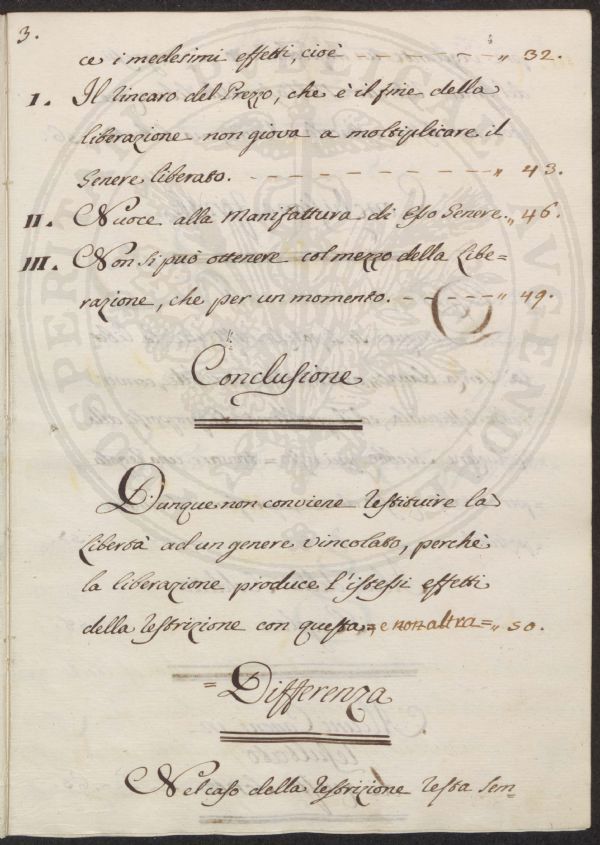 3.
ce i medesimi effetti, cioè - - - - - - - " 32.
I. Il Rincaro del Prezzo, che è il fine della
liberazione non giova a moltiplicare il
Genere liberato. - - - - - - - - - " 43.
II. Nuoce alla Manifattura di esso Genere. " 46.
III. Non si può ottenere col mezzo della Libe=
razione, che per un momento. - - - - - " 49.
Conclusione
Dunque non conviene restituire la
libertà ad un genere vincolato, perchè
la liberazione produce l'istessi effetti
della restrizione con questa = e non altra = " 50.
= Differenza
Nel caso della restrizione resta sem=